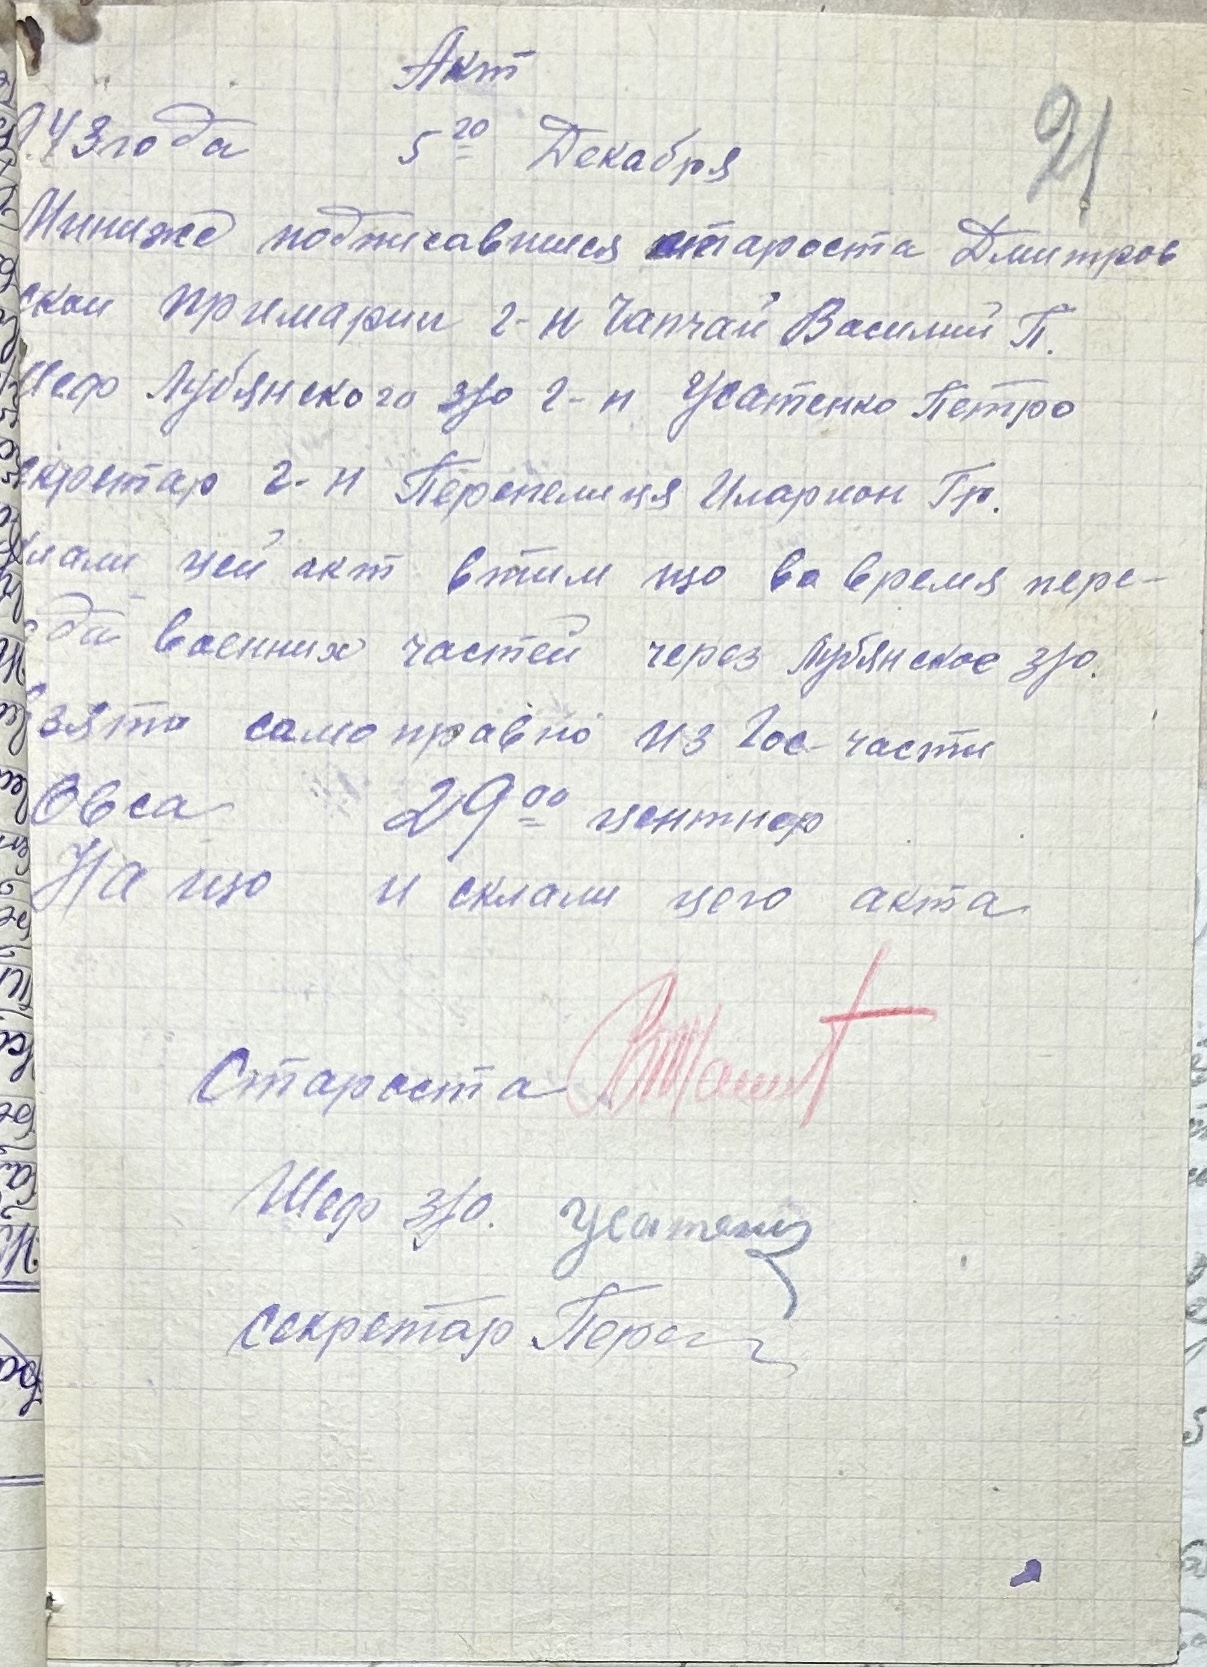 Акт
943 года 5го Декабря
21
Мыниже подписавшиеся староста Дмитров
ской примарии г-н Чапчай Василий П.
Шеф Лубянского з/о г-н Усатенко Петро
секретар г-н Перепелиця Иларион Гр.
клали цей акт втим що во время пере-
да военних частей через Лубянское з/о.
Взято самоправно из Гос-части
Овса 29оо центнер
На що и склали цего акта
Староста
Шеф з/о. Усатенко
секретар Переп